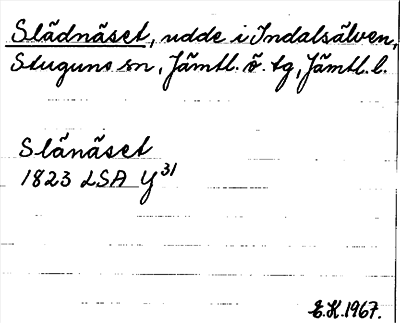 Slädnäset, udde i Indalsälven,
Stuguns sn, Jämtl. ö. tg, Jämtl. l.
Slänäset
1823 LSA Y31
E.K.1967.